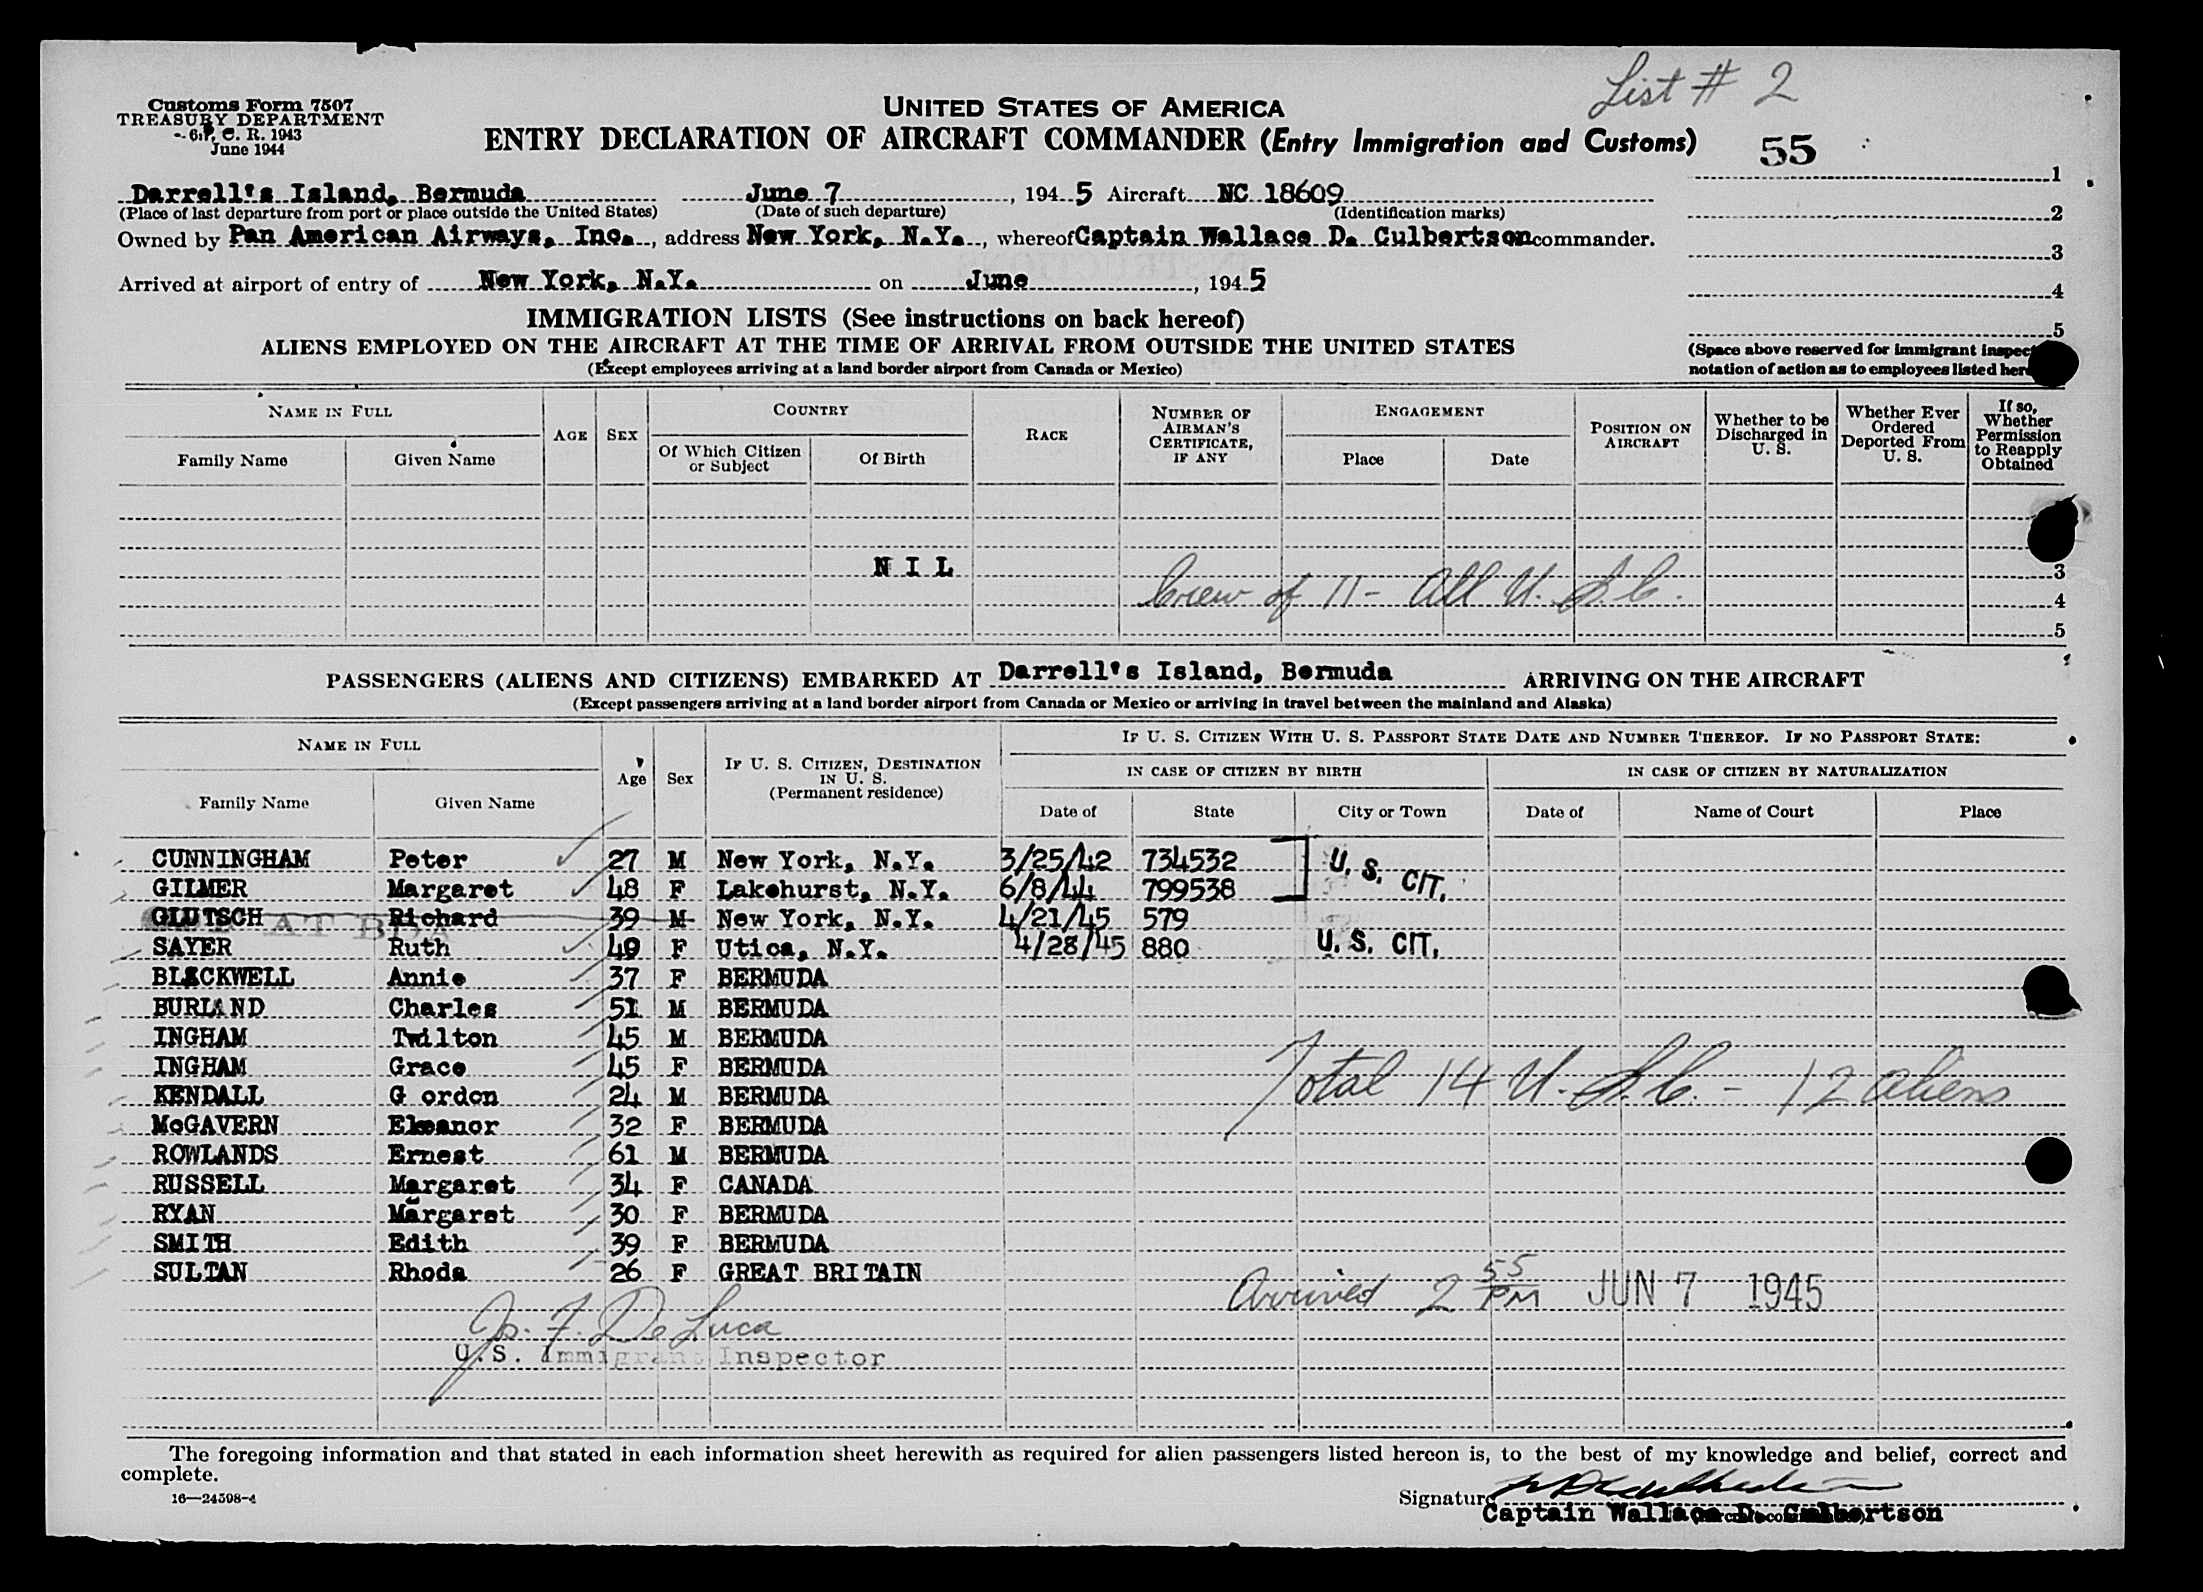 List # 2
Customs Form 7507
TREASURY DEPARTMENT
C. R. 1943
June 1944
UNITED STATES OF AMERICA
ENTRY DECLARATION OF AIRCRAFT COMMANDER (Entry Immigration and Customs)
55
Darrell's Island, Bermuda June 7, 1945 Aircraft NC 18609
(Place of last departure from port or place outside the United States) (Date of such departure) (Identification marks)
Owned by Pan American Airways, Inc., address New York, N.Y., whereof Captain Wallace D. Culbertson commander.
Arrived at airport of entry of New York, N.Y. on June, 1945
1
2
3
4
5
(Space above reserved for immigrant
notation of action as to employees listed
IMMIGRATION LISTS (See instructions on back hereof)
ALIENS EMPLOYED ON THE AIRCRAFT AT THE TIME OF ARRIVAL FROM OUTSIDE THE UNITED STATES
(Except employees arriving at a land border airport from Canada or Mexico)
NAME IN FULL
Family Name Given Name
AGE SEX
COUNTRY
Of Which Citizen or Subject Of Birth
RACE
NUMBER OF AIRMAN'S CERTIFICATE, IF ANY
ENGAGEMENT
Place Date
POSITION ON AIRCRAFT
Whether to be Discharged in U. S.
Whether Ever Ordered Deported From U. S.
If so, Whether Permission to Reapply Obtained
N I L
3
Crew of 11 - All U. S. C.
4
5
PASSENGERS (ALIENS AND CITIZENS) EMBARKED AT Darrell's Island, Bermuda ARRIVING ON THE AIRCRAFT
(Except passengers arriving at a land border airport from Canada or Mexico or arriving in travel between the mainland and Alaska)
NAME IN FULL
Family Name Given Name
Age Sex
IF U. S. CITIZEN, DESTINATION IN U. S.
(Permanent residence)
IF U. S. CITIZEN WITH U. S. PASSPORT STATE DATE AND NUMBER THEREOF. IF NO PASSPORT STATE:
IN CASE OF CITIZEN BY BIRTH IN CASE OF CITIZEN BY NATURALIZATION
Date of State City or Town Date of Name of Court Place
CUNNINGHAM Peter 27 M New York, N.Y. 3/25/42 734532 U. S. CIT.
GILMER Margaret 48 F Lakehurst, N.Y. 6/8/44 799538
GLUTSCH Richard 39 M New York, N.Y. 4/21/45 579
AT BDA
SAYER Ruth 49 F Utica, N.Y. 4/28/45 880 U. S. CIT.
BLACKWELL Annie 37 F BERMUDA
BURLAND Charles 51 M BERMUDA
INGHAM Twilton 45 M BERMUDA
INGHAM Grace 45 F BERMUDA
Total 14 U. S. C. - 12 aliens
KENDALL G ordon 24 M BERMUDA
McGAVERN Eleanor 32 F BERMUDA
ROWLANDS Ernest 61 M BERMUDA
RUSSELL Margaret 34 F CANADA
RYAN Margaret 30 F BERMUDA
SMITH Edith 39 F BERMUDA
SULTAN Rhoda 26 F GREAT BRITAIN
Arrived 2 55 PM JUN 7 1945
Jo. F. De Luca
U.S. Immigrant Inspector
The foregoing information and that stated in each information sheet herewith as required for alien passengers listed hereon is, to the best of my knowledge and belief, correct and
complete.
16—24598-4
Signature
Captain Wallace D. Culbertson